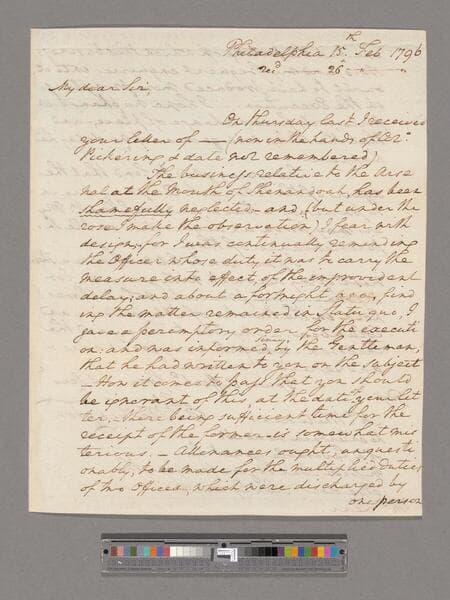 Philadelphia 15th Feb 1796
recd 26th
My dear Sir,
On Thursday last I received
your letter of — (now in the hands of Colo.
Pickering & date not remembered)
The business relative to the Arse
nal at the Mouth of Shenandoah, has been
shamefully neglected;—and, (but under the
rose I make the observation) I fear with
design; for I was continually reminding
the Officer whose duty it was to carry the
measure into effect, of the improvident
delay; and about a fortnight ago, find
ing the matter remained in Statu quo, I
gave a peremptory order for the executi
on: and was informed since, by the Gentleman,
that he had written to you on the subject
— How it comes to pass that you should
be ignorant of this, at the date of your let
ter, there being sufficient time for the
receipt of the former is somewhat mis
terious. — Allowances ought, unquesti
onably, to be made for the multiplied duties
of two Offices, which were discharged by
one person